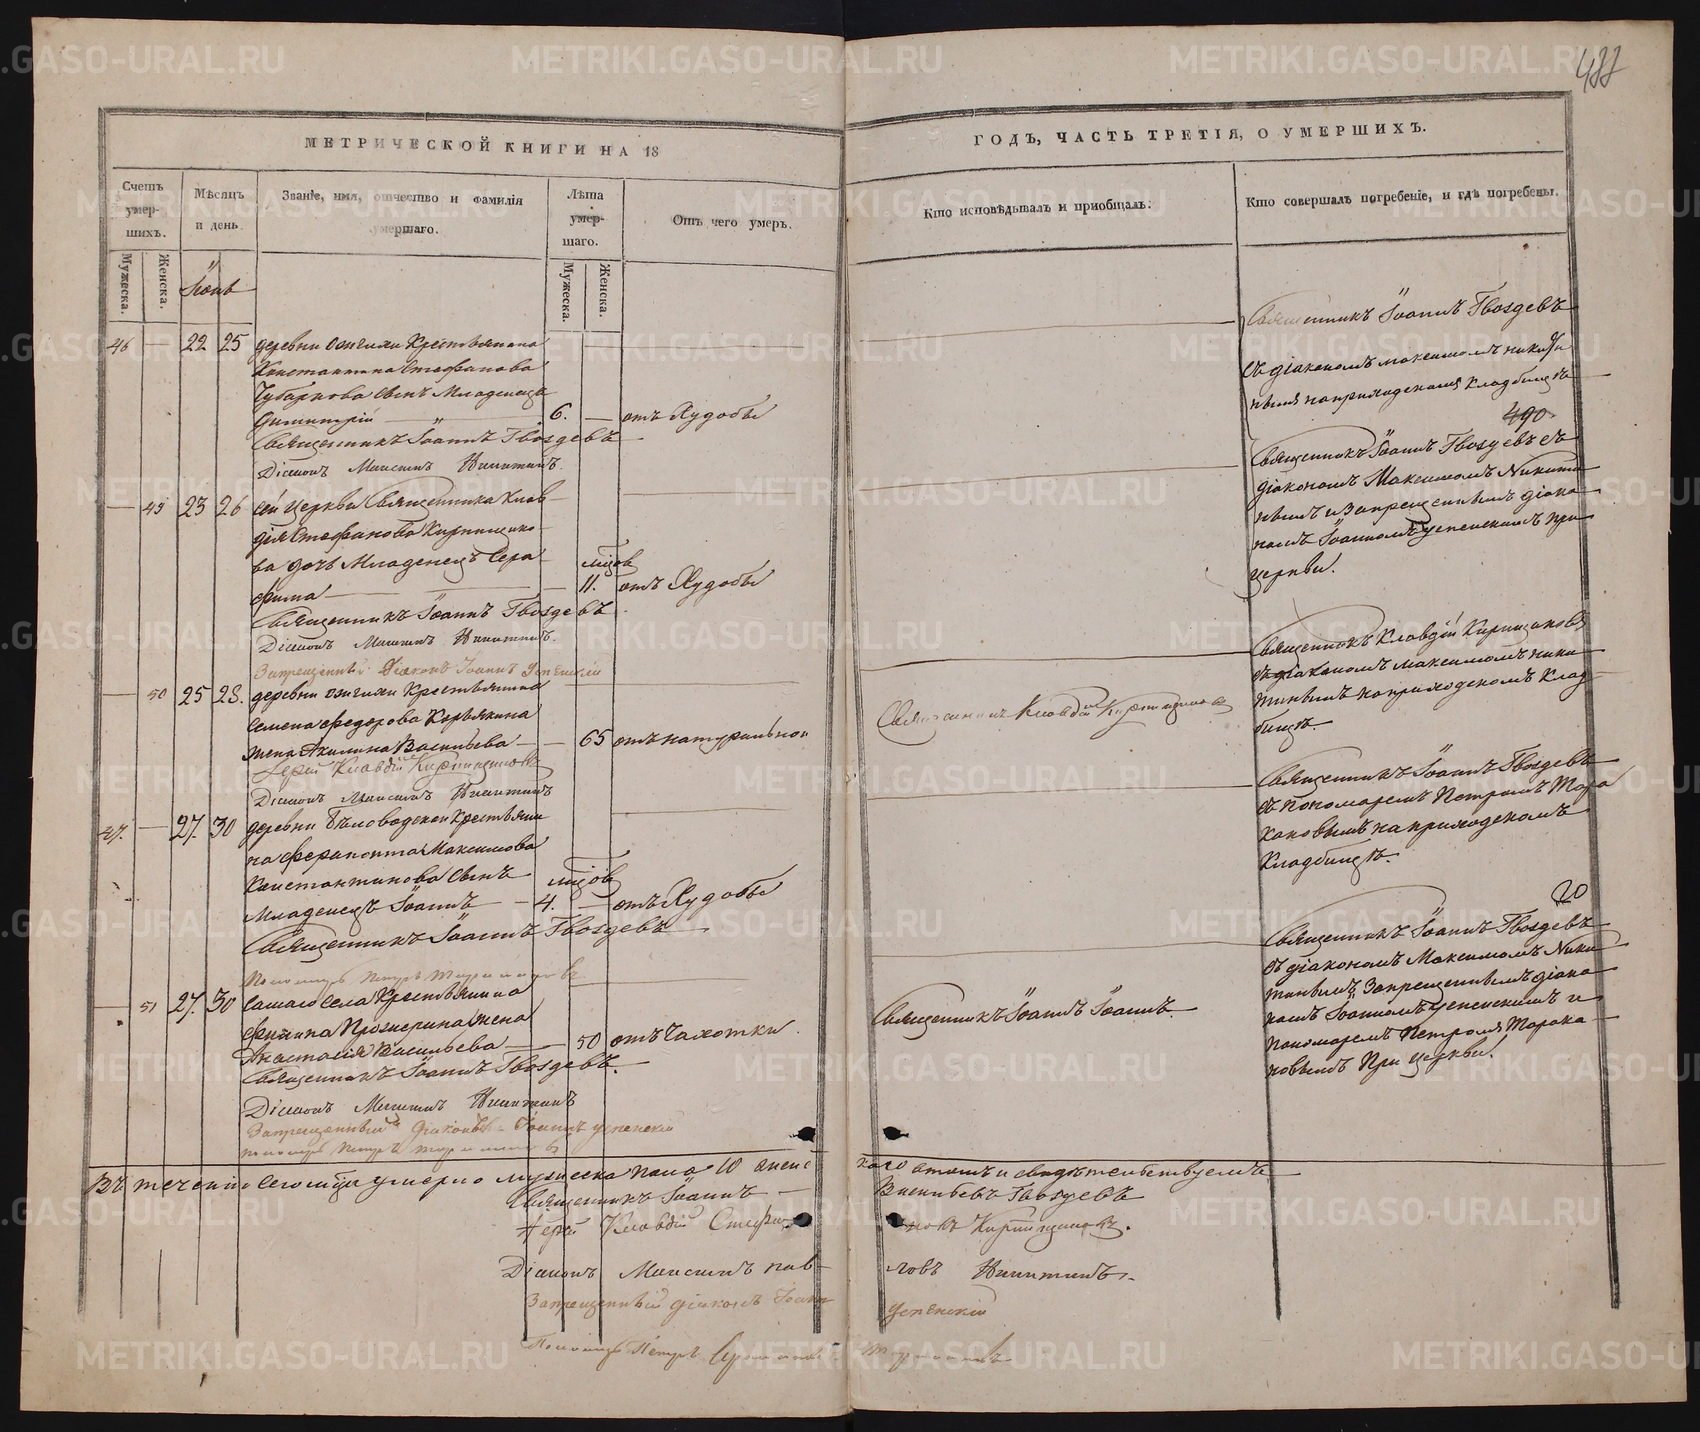 488
МЕТРИЧЕСКОЙ КНИГИ НА 18
ГОДЪ, ЧАСТЬ ТРЕТІЯ, О УМЕРШИХЪ.
Счетъ умер-шихъ.
Мѣсяцъ и день.
Званіе, имя, отчество и фамилія умершаго.
Лѣта умер-шаго.
Отъ чего умеръ.
Кто исповѣдывалъ и пріобщалъ.
Кто совершалъ погребеніе, и гдѣ погребены.
Мужеска.
Женска.
Мужеска.
Женска.
Іюнь
46 — 22 25 деревни Крестьянина
Константина Стефанова
Чубаркова сынъ Младенецъ
Димитрій — 6. — отъ Худобы
Священникъ Іоаннъ Гвоздевъ
Діаконъ Максимъ Никитинъ.
Священникъ Іоаннъ Гвоздевъ
съ діакономъ Максимомъ Никити
нымъ на приходскомъ кладбищѣ
490
— 49 23 26 сей церкви Священника Клав
дія Стефанова Кирпищико
ва дочь Младенецъ Сера
фима — 11. отъ Худобы
Священникъ Іоаннъ Гвоздевъ
Діаконъ Максимъ Никитинъ.
Запрещенный Діаконъ Іоаннъ Успенскій
Священникъ Іоаннъ Гвоздевъ съ
діакономъ Максимомъ Никити
нымъ и Запрещеннымъ діако
номъ Іоанномъ Успенскимъ при
церкви.
— 50 25 28. деревни Крестьянина
Семена Федорова Корвякина
жена Акилина Васильева — 65 отъ натуральной
Іерей Клавдій Кирпищиковъ
Діаконъ Максимъ Никитинъ
Священникъ Клавдій Кирпищиковъ
Священникъ Клавдій Кирпищиковъ
съ діакономъ Максимомъ Ники
тинымъ на приходскомъ Клад
бищѣ.
47. — 27. 30 деревни Бѣловодской Крестьяни
на Ферапонта Максимова
Константинова сынъ
Младенецъ Іоаннъ — 4. — отъ Худобы
Священникъ Іоаннъ Гвоздевъ
Священникъ Іоаннъ Гвоздевъ
съ пономаремъ Петромъ Тора
кановымъ на приходскомъ
Кладбищѣ.
20
— 51 27. 30 самаго села Крестьянина
жена
Анастасія Васильева — 50 отъ Чахотки.
Священникъ Іоаннъ Гвоздевъ.
Діаконъ Максимъ Никитинъ
Запрещенный Діаконъ Іоаннъ Успенскій
Священникъ Іоаннъ Іоаннъ.
Священникъ Іоаннъ Гвоздевъ
съ діакономъ Максимомъ Ники
тинымъ Запрещеннымъ діако
номъ Іоанномъ Успенскимъ и
пономаремъ Петромъ Торака
новымъ При церкви.
Въ теченіи сего мѣсяца умерло мужеска пола 10 женс
каго о томъ и свидѣтельствуемъ
Священникъ Іоаннъ
Васильевъ Гвоздевъ
Іерей Клавдій Стефа
новъ Кирпищиковъ.
Діаконъ Максимъ Пав
ловъ Никитинъ.
Запрещенный діаконъ Іоаннъ
Успенскій
Петръ